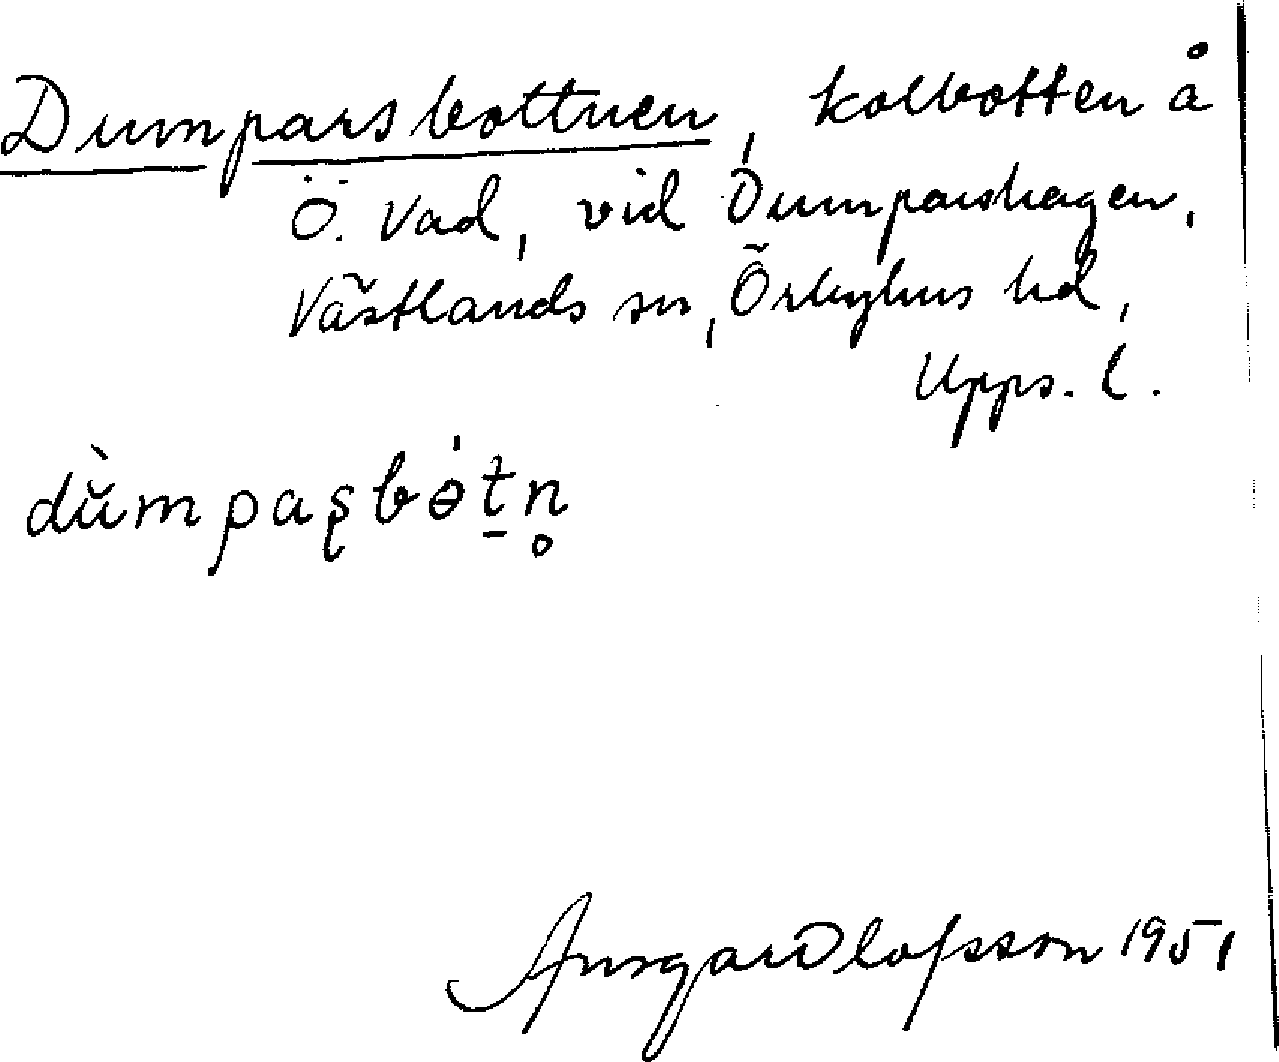 Dumparsbottnen, kolbotten å
Ö. Vad, vid Dumparshagen,
Västlands sn, Örbyhus hd,
Upps. l.
dùmpaʂbɵ́tn̥
Ansgar Olofsson 1951